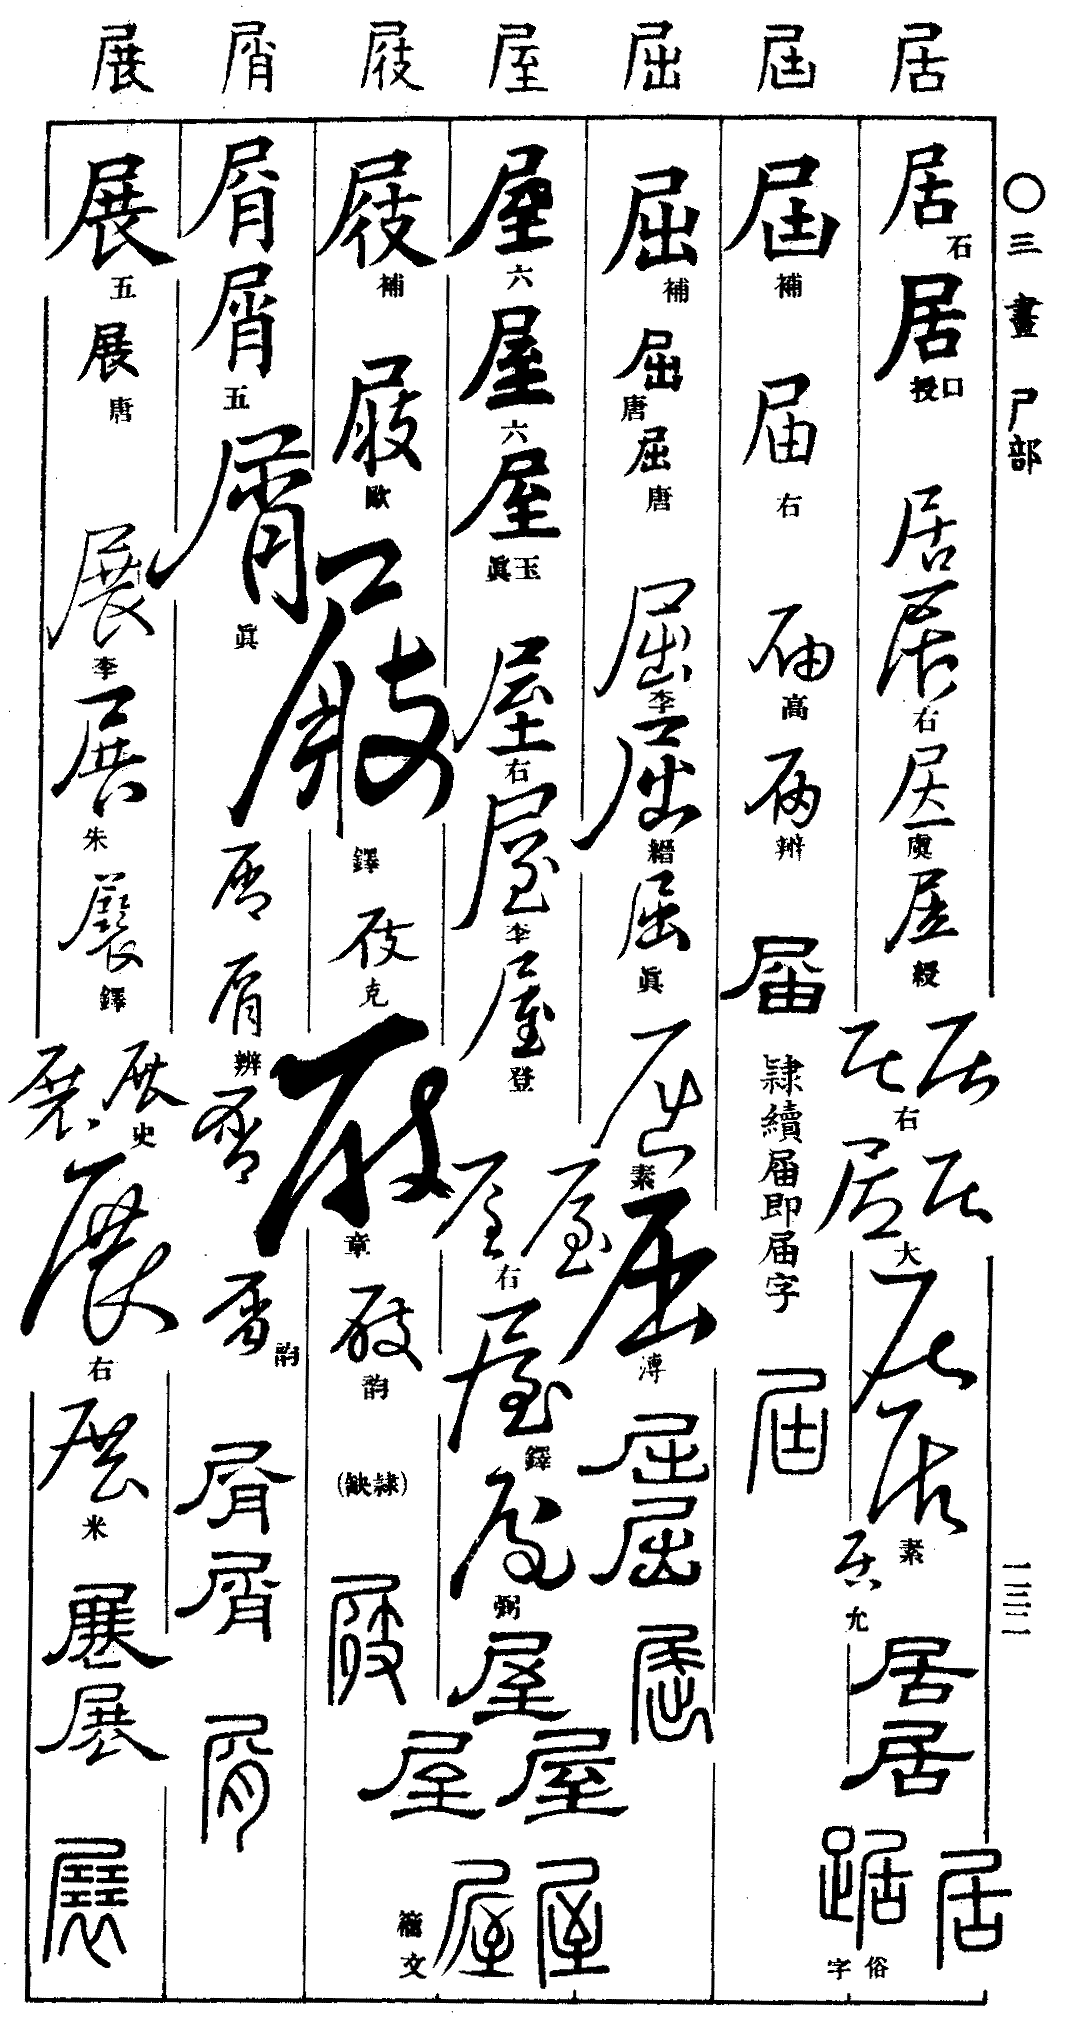 〇三畫 尸部
一三二
居 屆 屈 屋 屐 屑 展
居石居授口
居居右居虞居綬
居居右居居大居居素居允
居居
居踞俗字
屆補
届右届高届辨
届
隷續届即届字
屆
屈補屈唐屈唐
屈李屈縉屈眞
屈素屈溥
屈屈
屈
屋六屋六屋眞玉
屋右屋李屋登
屋屋右屋鐸屋弼
屋屋屋
屋屋籀文
屐補屐歐
屐鐸
屐克屐章屐韵
(隷缺)
屐
屑屑五
屑眞
屑屑辨屑屑韵
屑屑
屑
展五展唐
展李展朱展鐸
展展史展右展米
展展
展